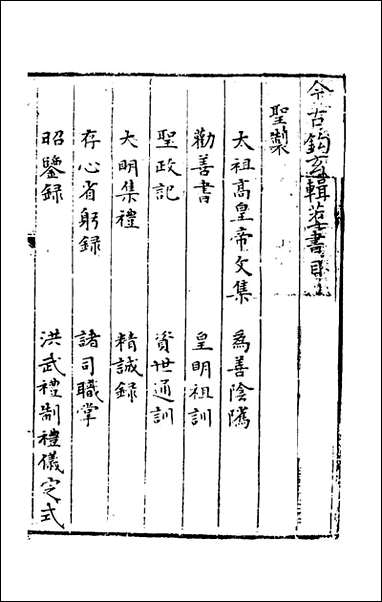 今古鈎玄輯著書目
聖製
太祖高皇帝文集 為善陰隲
勸善書 皇明祖訓
聖政記 資世通訓
大明集禮 精誠録
存心省躬録 諸司職掌
昭鑒録 洪武禮制禮儀定式